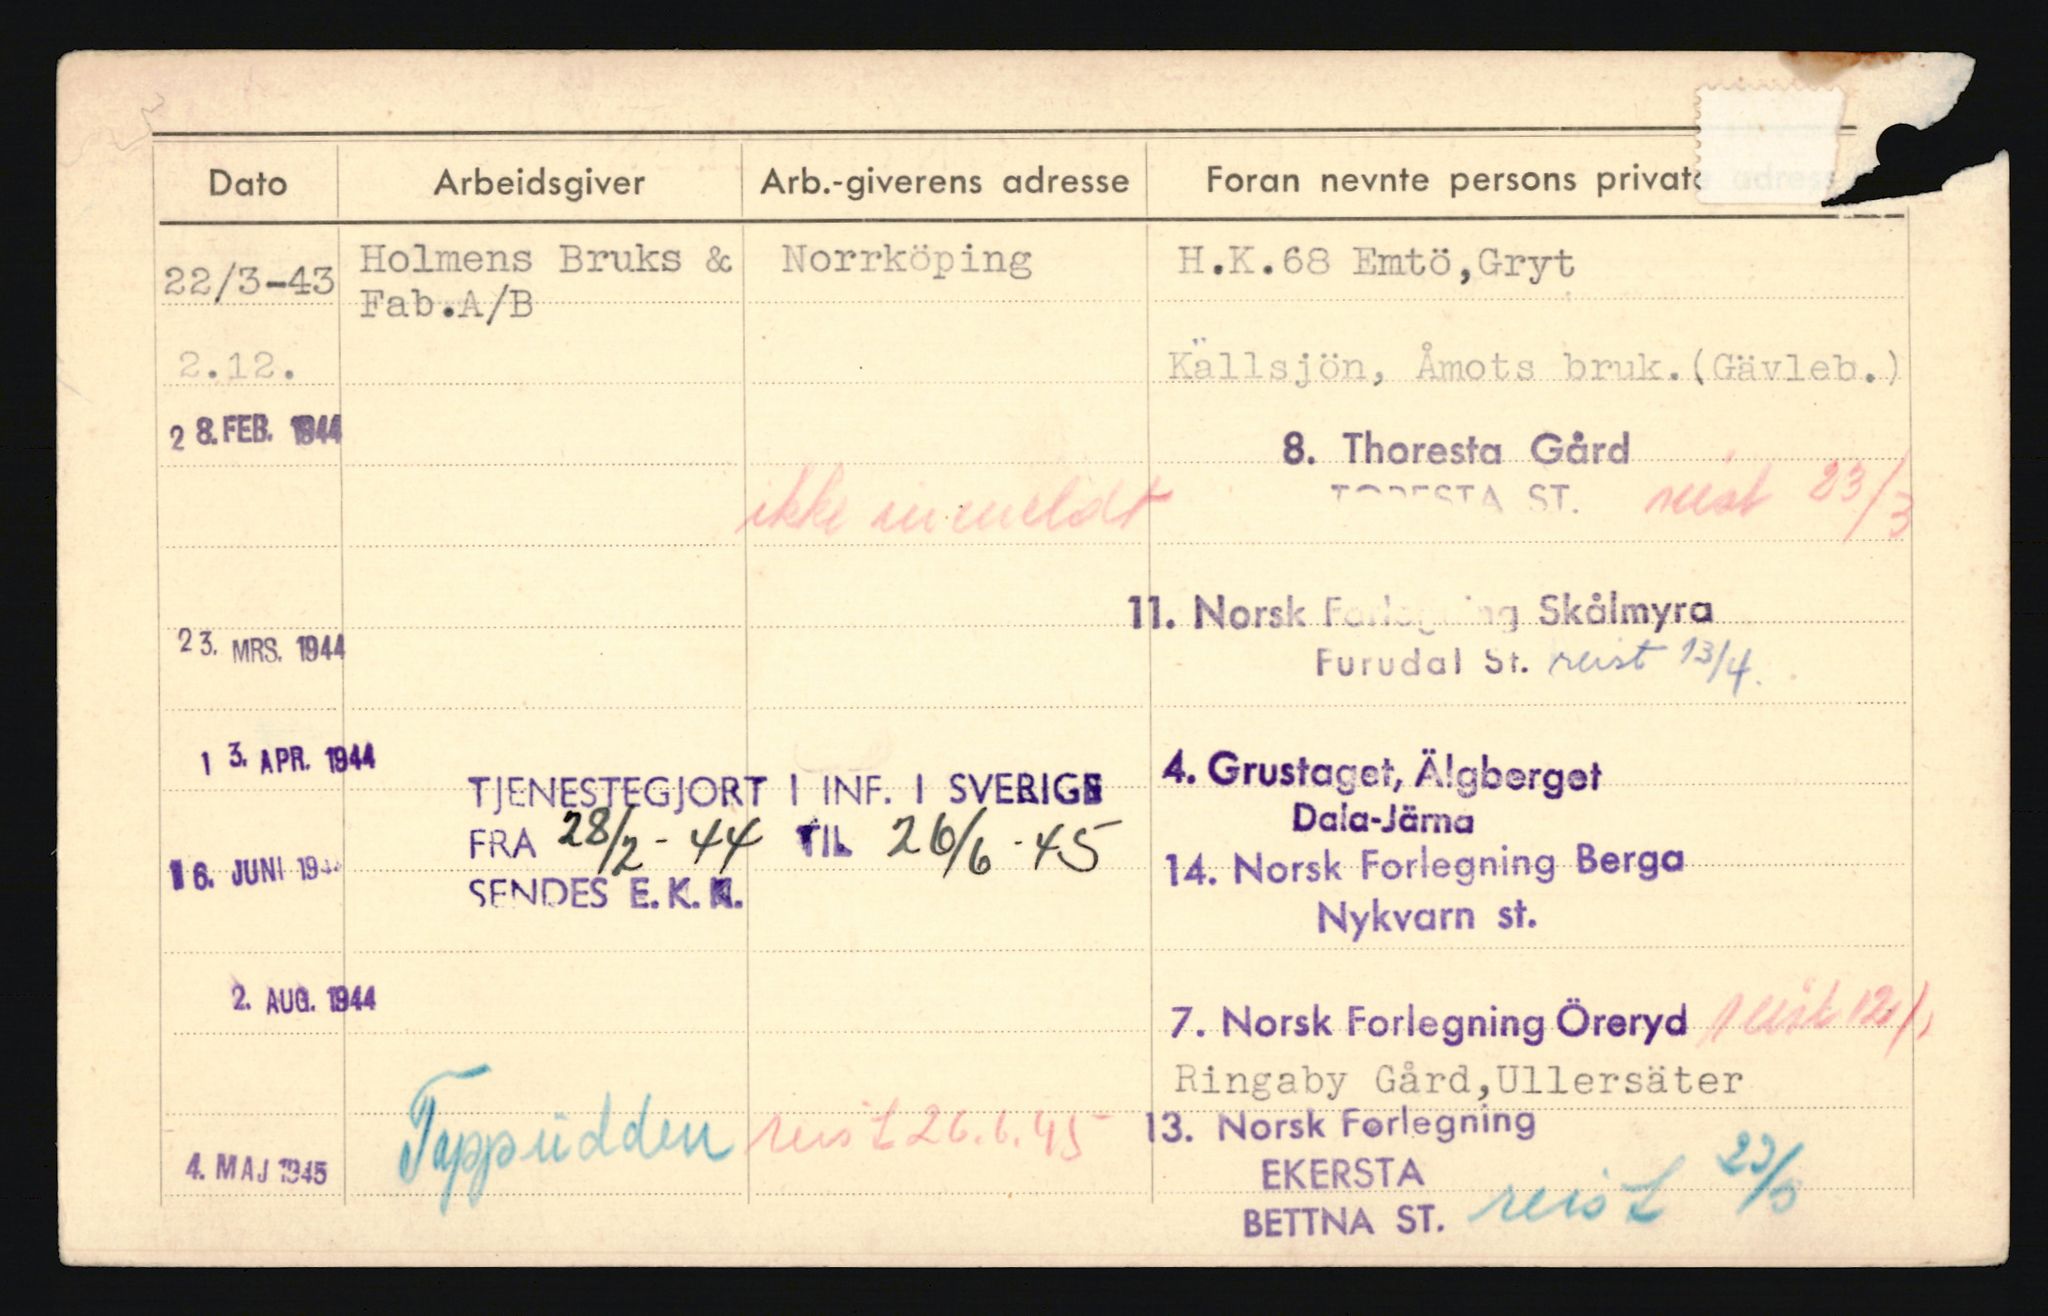 Dato Arbeidsgiver Arb.-giverens adresse Foran nevnte persons private adresse
22/3-43 Holmens Bruks & Norrköping H.K.68 Emtö,Gryt
Fab.A/B
2.12. Källsjön, Åmots bruk.(Gävleb.)
28. FEB. 1944 8. Thoresta Gård
ikke innmeldt TORESTA ST. reist 23/3
11. Norsk Forlegning Skålmyra
23. MRS. 1944 Furudal St. reist 13/4.
13. APR. 1944 4. Grustaget, Älgberget
TJENESTEGJORT I INF. I SVERIGE
Dala-Järna
FRA 28/2-44 TIL 26/6-45
16. JUNI 1944 14. Norsk Forlegning Berga
SENDES E.K.K.
Nykvarn st.
2. AUG. 1944 7. Norsk Forlegning Öreryd reist
Ringaby Gård,Ullersäter
Tappudden reist 26.6.45 13. Norsk Forlegning
4. MAJ 1945 EKERSTA
BETTNA ST. reist